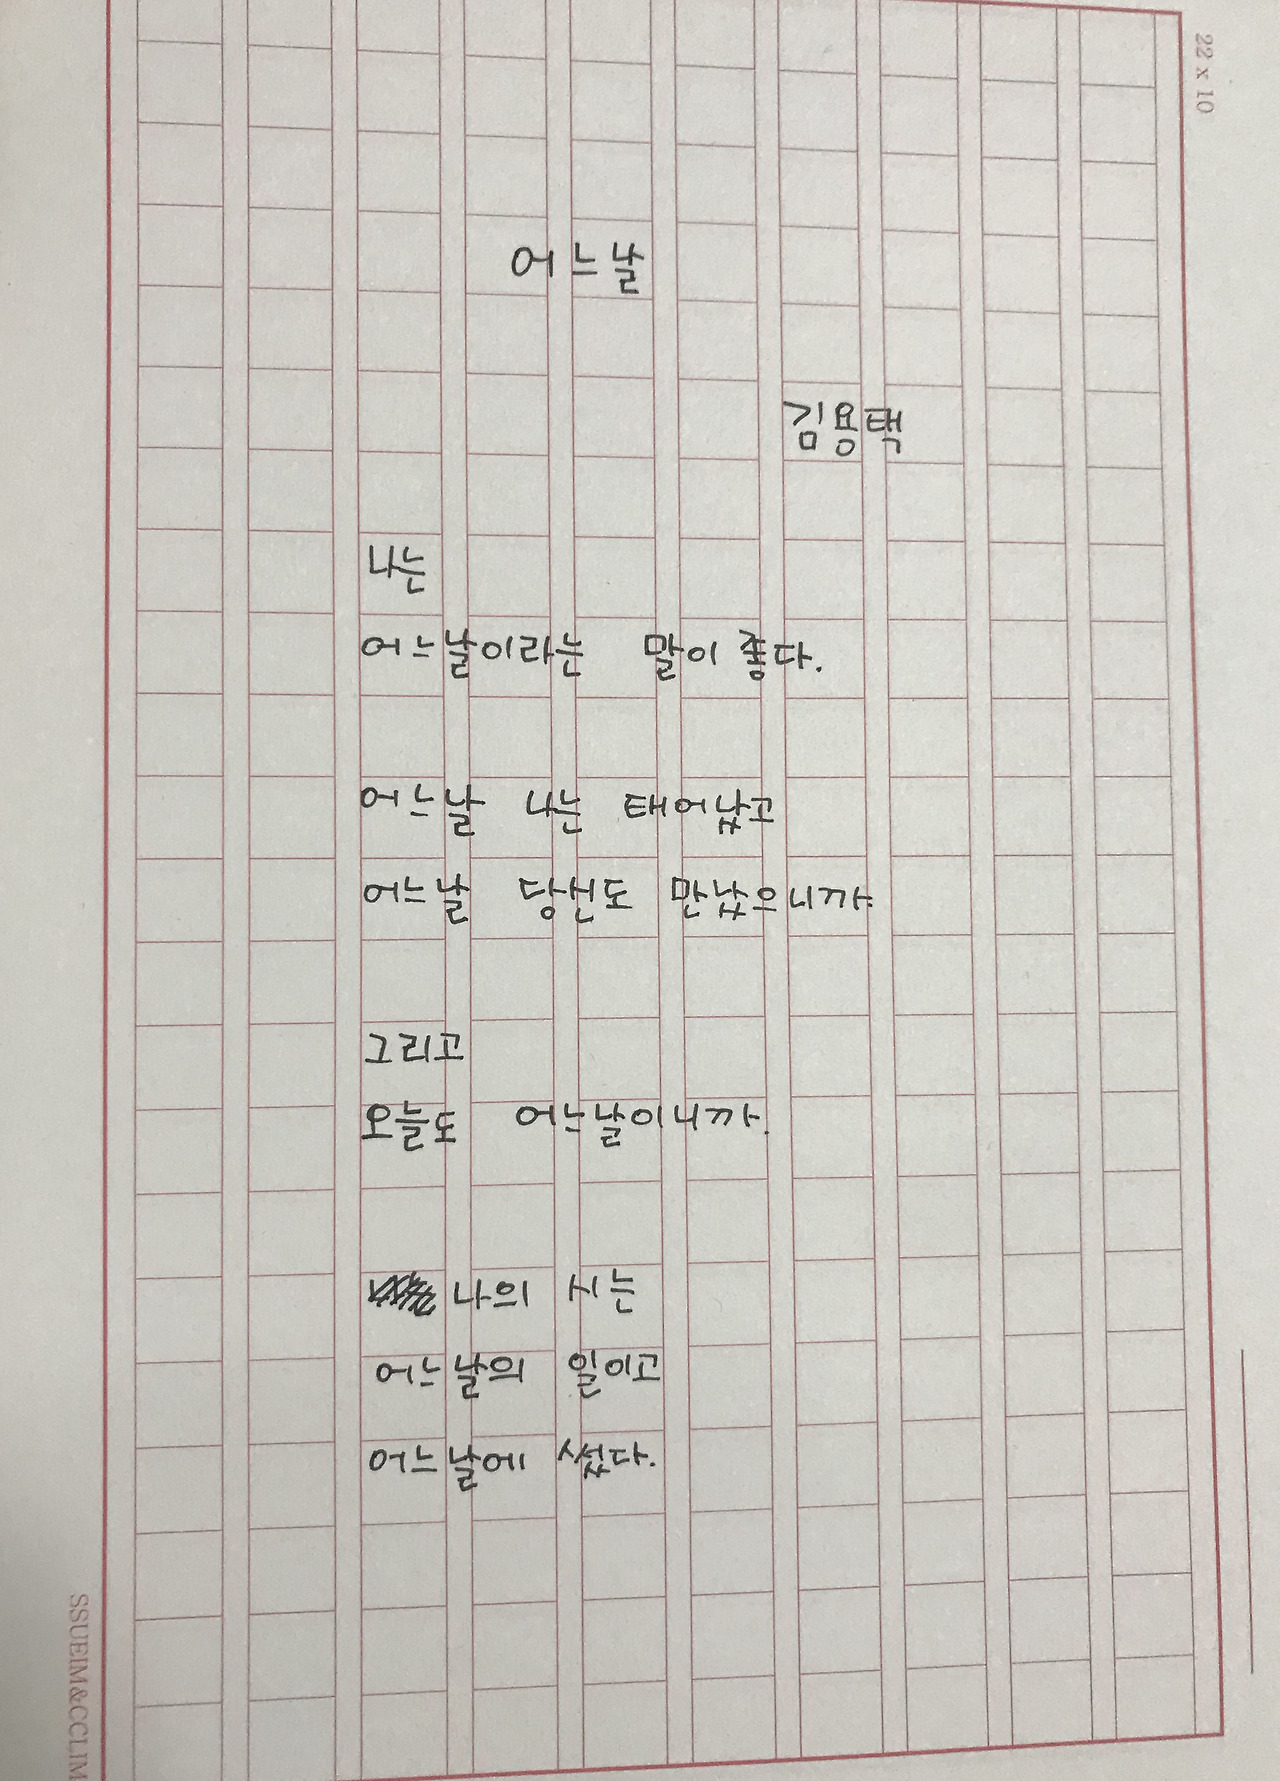 22 x 10
어느날
김용택
나는
어느날이라는 말이 좋다.
어느날 나는 태어났고
어느날 당신도 만났으니까.
그리고
오늘도 어느날이니까.
나의 시는
어느날의 일이고
어느날에 썼다.
SSUEIM&CCLIM